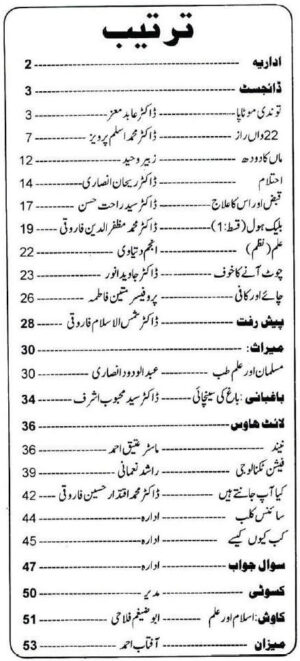 ترتیب
اداریہ ---------- 2
ڈائجسٹ ---------- 3
توندی موٹاپا ---------- ڈاکٹر عابد معز ---------- 3
22واں راز ---------- ڈاکٹر محمد اسلم پرویز ---------- 7
ماں کا دودھ ---------- زبیر وحید ---------- 12
احتلام ---------- ڈاکٹر ریحان انصاری ---------- 14
قبض اور اس کا علاج ---------- ڈاکٹر سید راحت حسن ---------- 17
بلیک ہول (قسط:1) ---------- ڈاکٹر محمد مظفر الدین فاروقی ---------- 19
علم (نظم) ---------- انجم دتیاوی ---------- 22
چوٹ آنے کا خوف ---------- ڈاکٹر جاوید انور ---------- 23
چائے اور کافی ---------- پروفیسر متین فاطمہ ---------- 26
پیش رفت ---------- ڈاکٹر شمس الاسلام فاروقی ---------- 28
میراث: ---------- 30
مسلمان اور علم طب ---------- عبدالودود انصاری ---------- 30
باغبانی: باغ کی سینچائی ---------- ڈاکٹر سید محبوب اشرف ---------- 34
لائٹ ہاؤس ---------- 36
نیند ---------- ماسٹر عتیق احمد ---------- 36
فیشن ٹکنالوجی ---------- راشد نعمانی ---------- 39
کیا آپ جانتے ہیں ---------- ڈاکٹر محمد اقتدار حسین فاروقی ---------- 42
سائنس کلب ---------- ادارہ ---------- 44
کب کیوں کیسے ---------- ادارہ ---------- 45
سوال جواب ---------- ادارہ ---------- 47
کسوٹی ---------- مدیر ---------- 50
کاوش: اسلام اور علم ---------- ابو ضیغم فلاحی ---------- 51
میزان ---------- آفتاب احمد ---------- 53